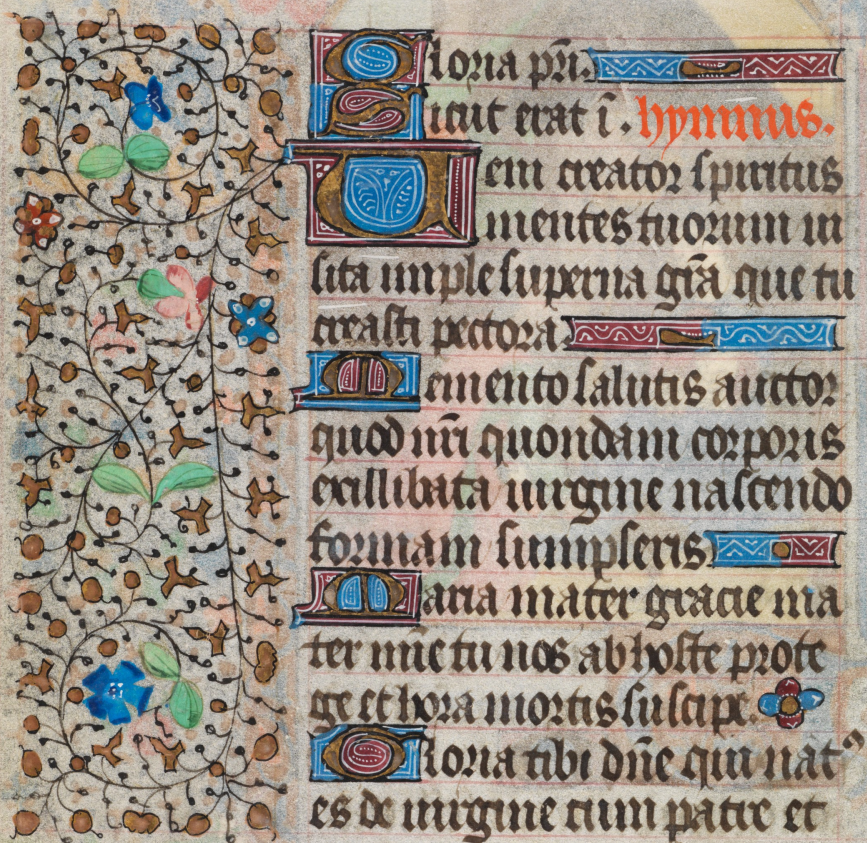 Gloria pr̄i.
Sicut erat ī. hymnus.
Veni creator spiritus
mentes tuorum vi
sita imple superna gr̄a que tu
creasti pectora
Memento salutis auctor
quod nr̄i quondam corporis
exillibata virgine nascendo
formam sumpseris
Maria mater gracie ma
ter mīe tu nos ab hoste prote
ge et hora mortis suscipe.
Gloria tibi dn̄e qui natꝰ
es de virgine cum patre et